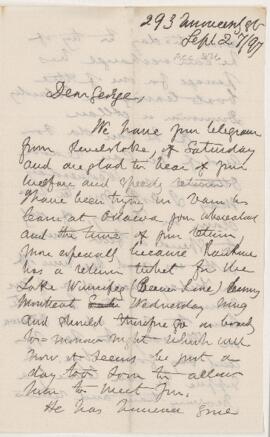 Sept. 27/97
Dear George,
We have your telegram
from Revelstoke, of Saturday
and are glad to hear of your
welfare and speedy return
I have been trying in vain to
learn at Ottawa your whereabouts
and the time of your return
more especially because
has a return ticket for the
Lake Winnipeg (Beaver Line) leaving
Montreal Wednesday morng
and should therefore go on board
to-morrow night - which will
now it seems be just a
day too soon to allow
him to meet you.
He has however some